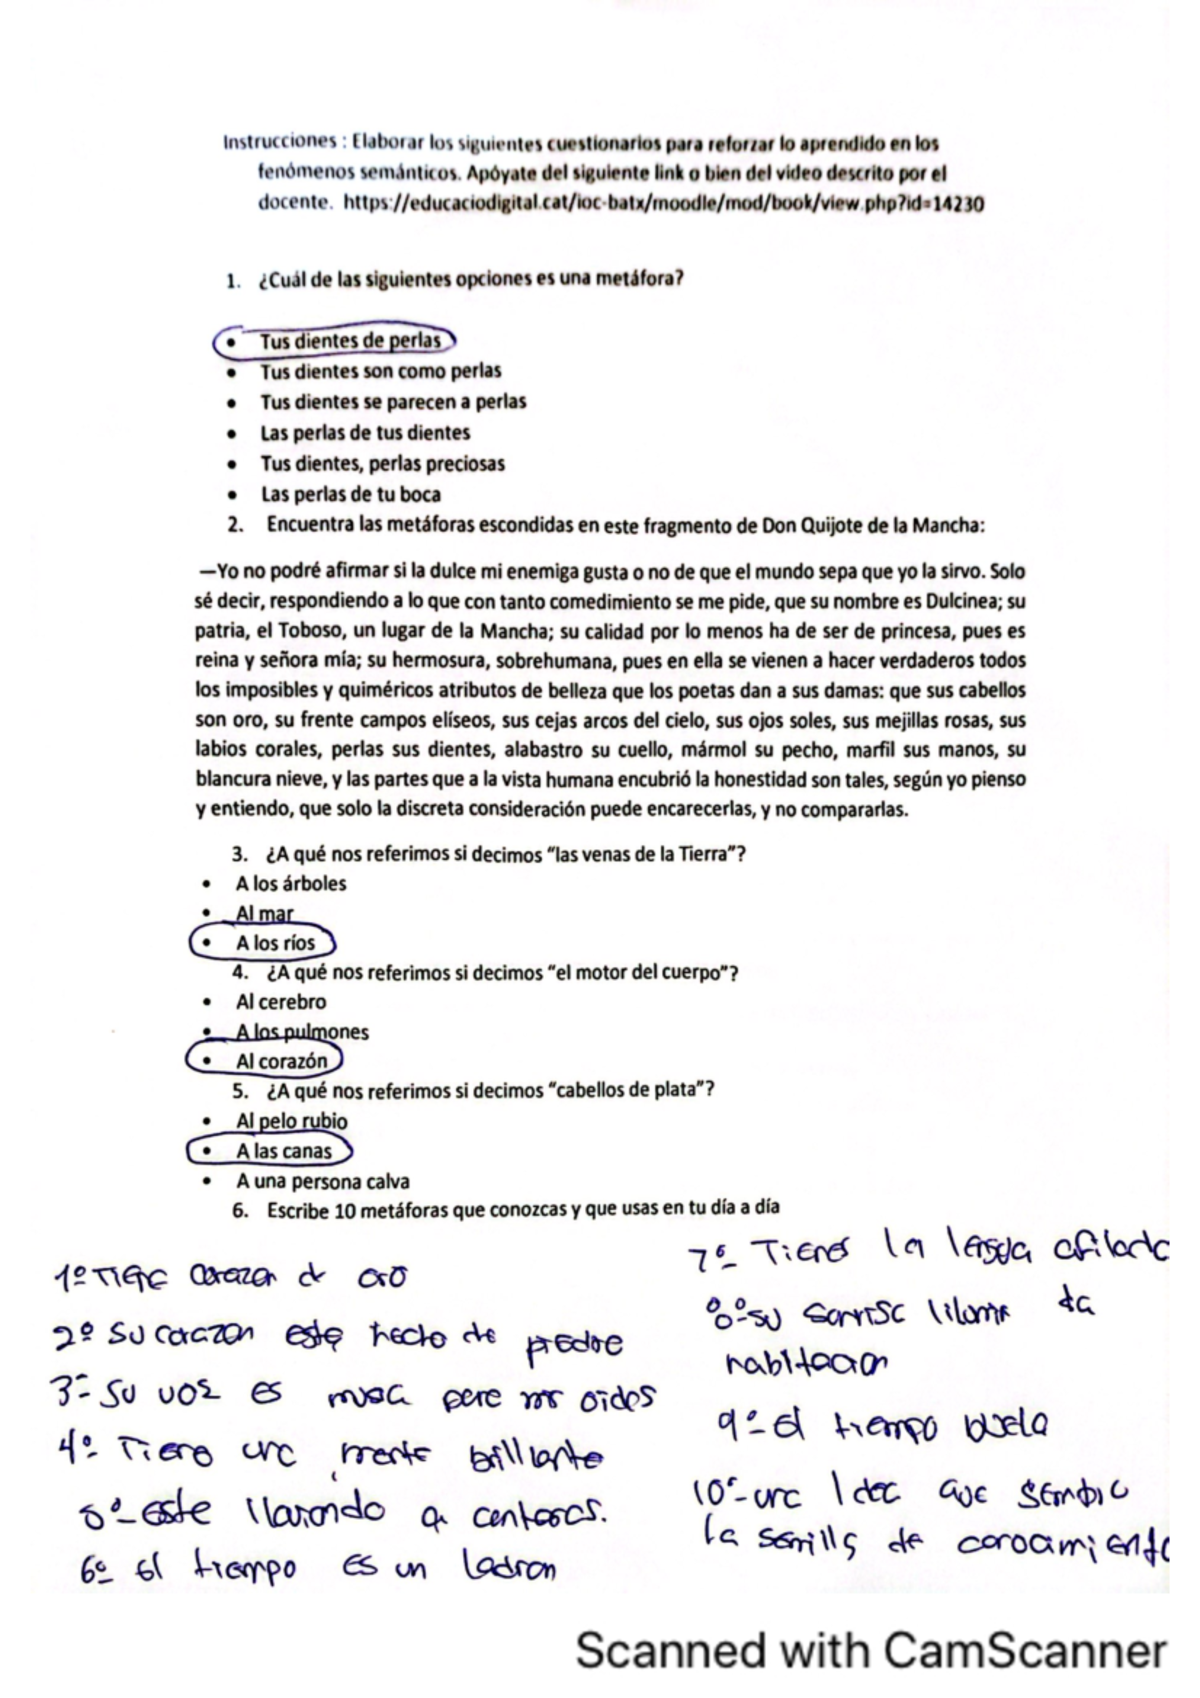 Instrucciones : Elaborar los siguientes cuestionarios para reforzar lo aprendido en los
fenómenos semánticos. Apóyate del siguiente link o bien del video descrito por el
docente. https://educaciodigital.cat/ioc-batx/moodle/mod/book/view.php?id=14230
1. ¿Cuál de las siguientes opciones es una metáfora?
• Tus dientes de perlas
• Tus dientes son como perlas
• Tus dientes se parecen a perlas
• Las perlas de tus dientes
• Tus dientes, perlas preciosas
• Las perlas de tu boca
2. Encuentra las metáforas escondidas en este fragmento de Don Quijote de la Mancha:
—Yo no podré afirmar si la dulce mi enemiga gusta o no de que el mundo sepa que yo la sirvo. Solo
sé decir, respondiendo a lo que con tanto comedimiento se me pide, que su nombre es Dulcinea; su
patria, el Toboso, un lugar de la Mancha; su calidad por lo menos ha de ser de princesa, pues es
reina y señora mía; su hermosura, sobrehumana, pues en ella se vienen a hacer verdaderos todos
los imposibles y quiméricos atributos de belleza que los poetas dan a sus damas: que sus cabellos
son oro, su frente campos elíseos, sus cejas arcos del cielo, sus ojos soles, sus mejillas rosas, sus
labios corales, perlas sus dientes, alabastro su cuello, mármol su pecho, marfil sus manos, su
blancura nieve, y las partes que a la vista humana encubrió la honestidad son tales, según yo pienso
y entiendo, que solo la discreta consideración puede encarecerlas, y no compararlas.
3. ¿A qué nos referimos si decimos “las venas de la Tierra”?
• A los árboles
• Al mar
• A los ríos
4. ¿A qué nos referimos si decimos “el motor del cuerpo”?
• Al cerebro
• A los pulmones
• Al corazón
5. ¿A qué nos referimos si decimos “cabellos de plata”?
• Al pelo rubio
• A las canas
• A una persona calva
6. Escribe 10 metáforas que conozcas y que usas en tu día a día
1º Tiene corazon de oro
2º Su corazon este hecho de piedra
3º- Su voz es para oidos
4º- Tiene una mente brillante
5º- este llorando a centaros.
6º el tiempo es un ladron
7º- Tienes la lengua afilada
8º- su sonrisa la
habitacion
9º- el tiempo buela
10º- una idea que sembro
la semilla de conocimiento
Scanned with CamScanner